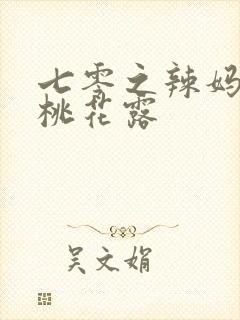 七零之辣妈
桃花露
吴文娟